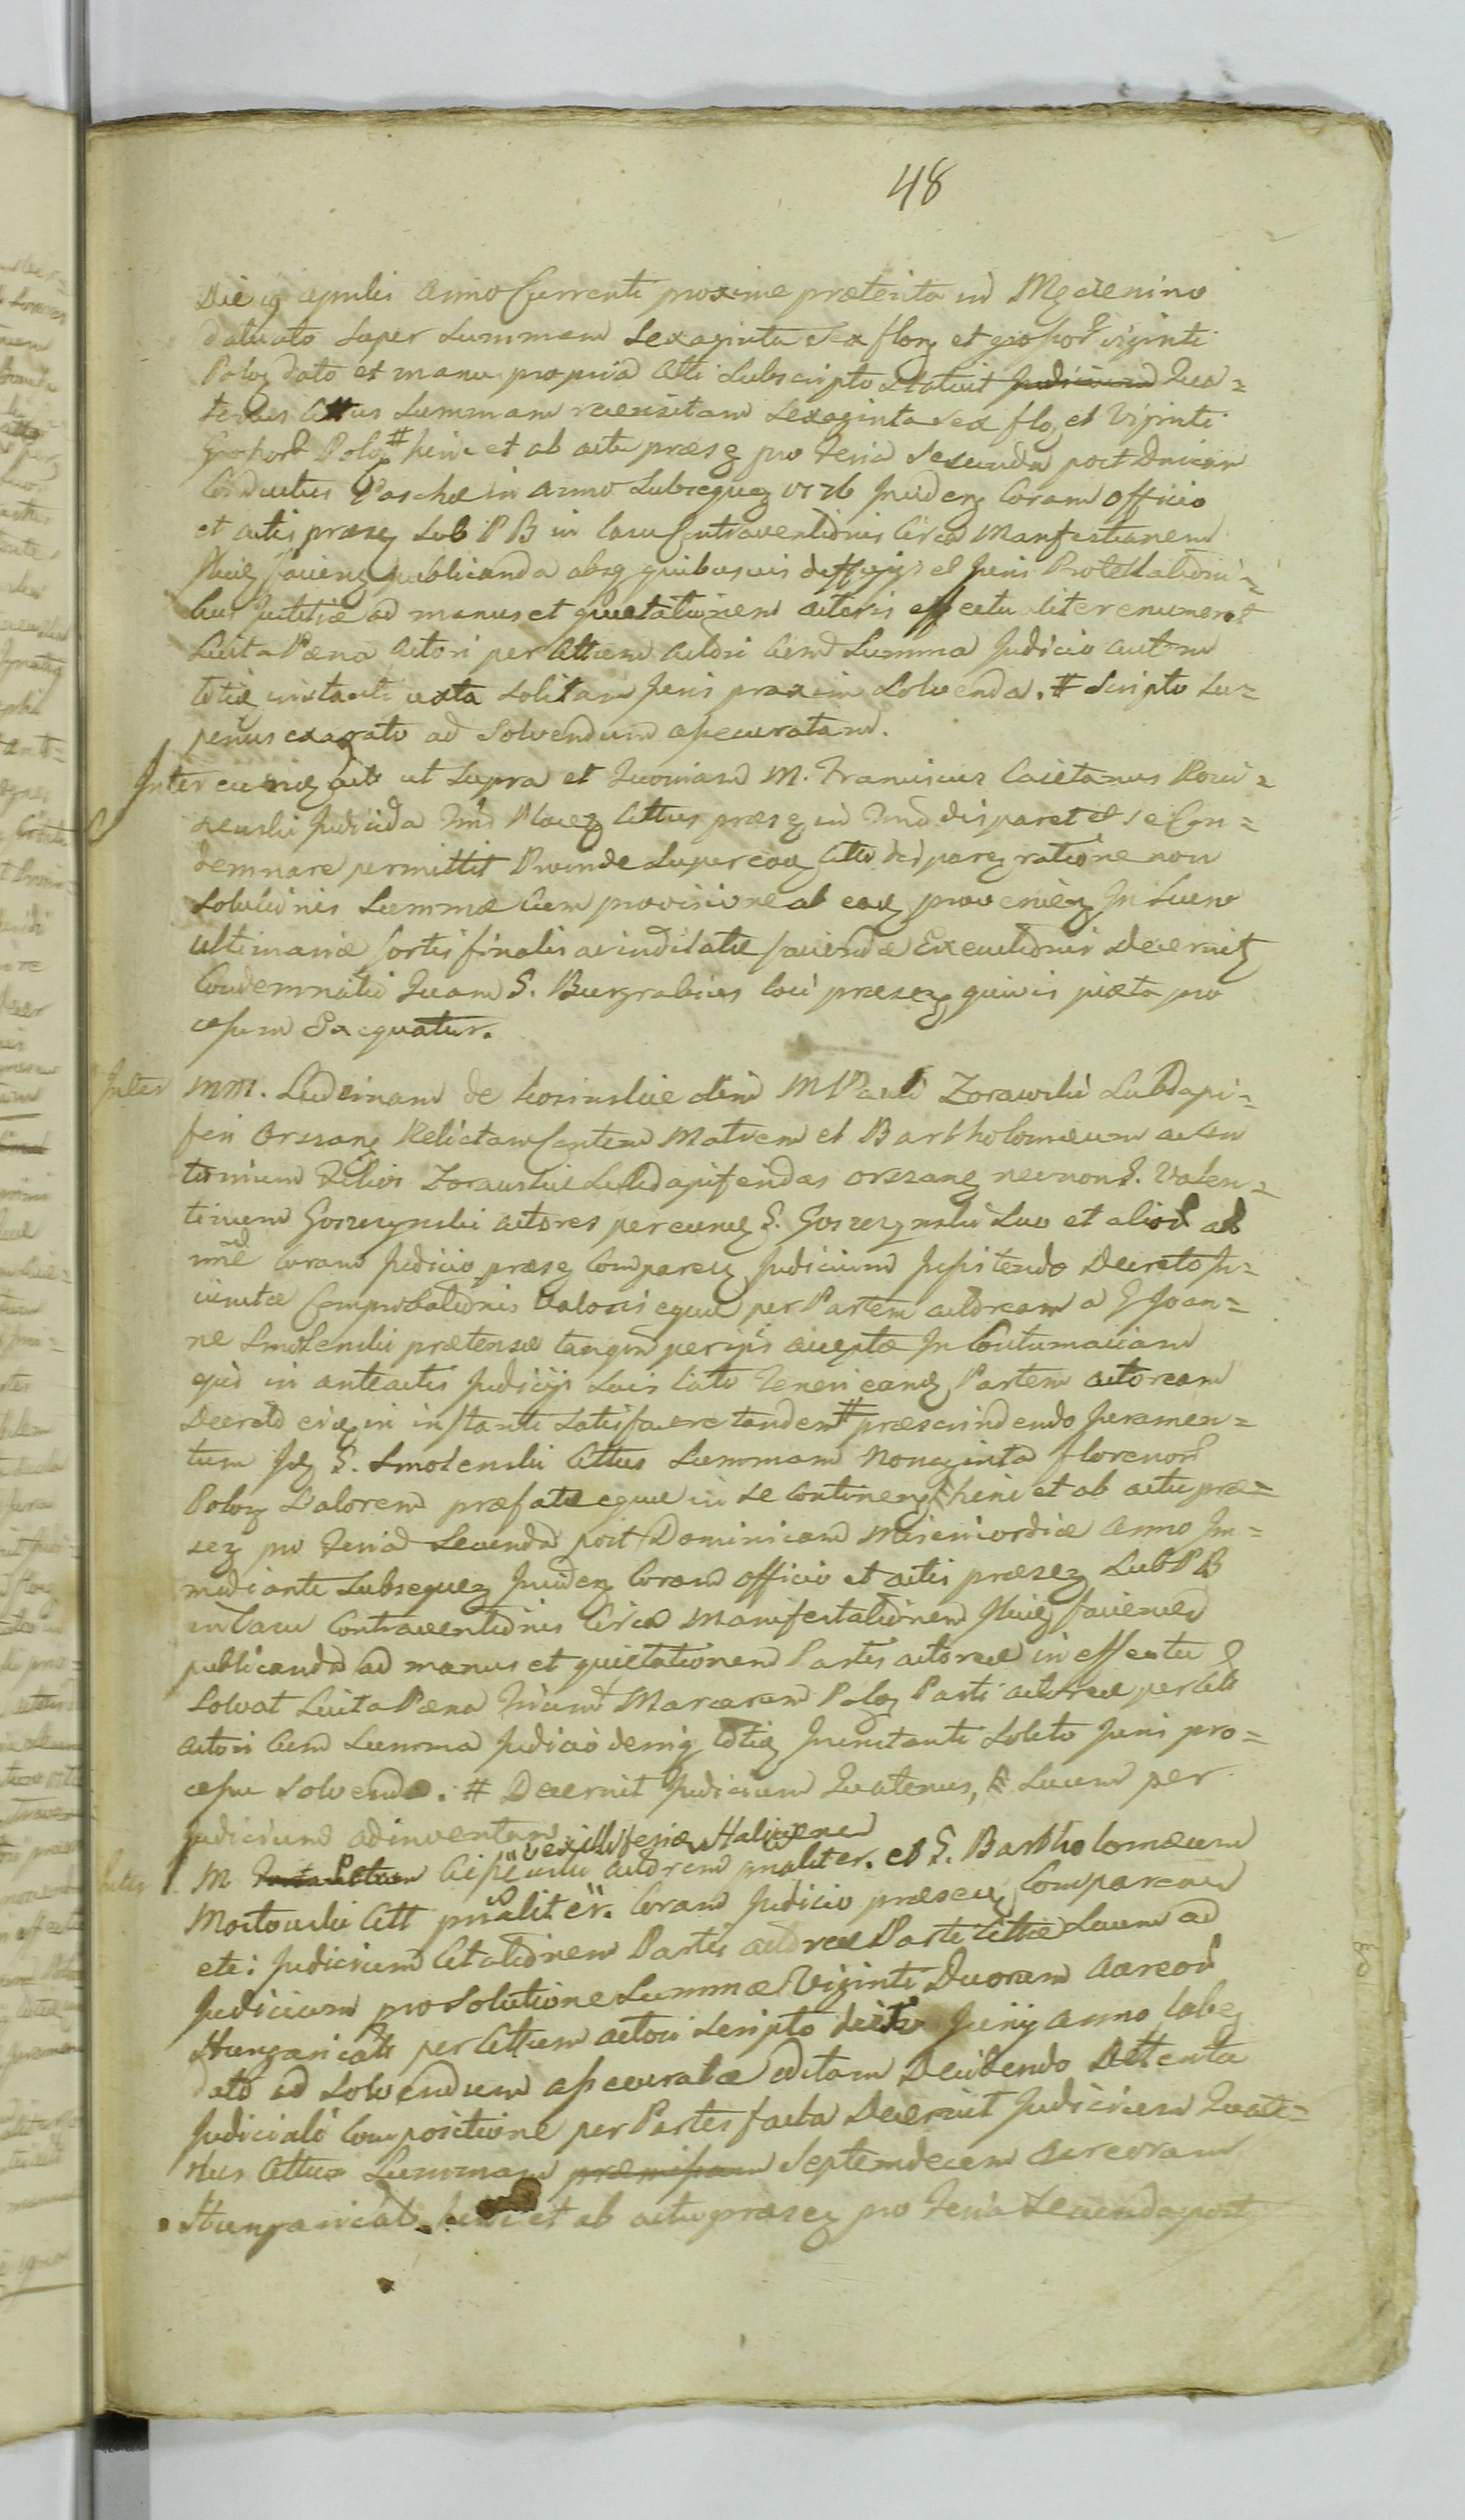 48
Die 19 Aprilis Anno Currenti proxime præterita in
datuato super Summam Sexaginta Sex floz et grossor viginti
Poloz dato et manu propria Citti Subscripto statuit Judicium Qua=
tenus Cittus Summam recensitam Sexaginta Sex floz et Viginti
Grossor Poloz # hinc et ab actu præsez pro Feria Secunda post Dnicam
Conductus Paschæ in Anno Subsequez 1776 Incidez Coram Officio
et actis præsez sub PB in Casu Contraventionis Circa Manfestionem
Huiz facienz publicanda absqz quibusvis diffugijs et Juris Protestationi=
bus Justitiæ ad manus et quietationem actoris effectualiter enumeret
Luita Pæna Actori per Cittum Actori Cum Summa Judicio autem
totiæ instanti juxta Solitam Juris praxim Solvenda. # Scripto su=
perius exarato ad Solvendum assecuratam.
Inter eundz act ut Supra et Quoniam M. Franciscus Caietanus
Cittus præsez in Tmo disparet et se Con=
demnare permittit Proinde Super eoz Citto disparez ratione non
Solutionis Summæ Cum provisione ab eaz provenienz In Lucro
ultimariæ Sortis finalis ac inditatæ faciendæ Executionis Decernitz
Condemnatio Quam S. Burgrabius loci præsez quivis juxta pro
cessum Exequatur.
Inter MM. Ludvinam de Kosinskie olim M Pauli Zorawski Subdapi=
feri Orszanz Relictam Constem Matrem et Bartholomæum ac An
tonium Filios Zorawskie Subdapiferidas Orszanz necnon S. Valen=
tinum Goszczynski Actores per eundz S. Goszczynski Suo et alior ad
mnd Coram Judicio præsez Comparez Judicium Insistendo Decreto In=
Comprobationis Valoris equæ per Partem Actoream a S Joan=
ne Smolenski prætensæ tanqm per ipsu acceptæ In Contumaciam
ejus in anteactis Judicijs Suis lato Teneri eandz Partem actoream
Decreto eiqz in instanti Satisfacere tandem # præscindendo Juramen=
tum Idz S. Smolenski Cittus Summam Nonaginta florenor
Poloz Valorem præfatæ equæ in se Continenz hinc et ab actu præ=
sez pro Feria Secunda post Dominicam Misericordiæ Anno Im=
mediante Subsequez Incidez Coram Officio et actis præsez Sub PB
in Casu Contraventionis Circa Manifestationem Huiz faciendz
publicanda ad manus et quietationem Partis actoreæ in effectu
Solvat Luita Pæna Trium Marcarum Poloz Parti actoreæ per Citt
actori Cum Summa Judicio deniqz totiæ Incunctanti Solito Juris pro=
cessu Solvenda. # Decernit Judicium Quatenus, Lucum per
Judicium adinventum
vexilliferiæ Haliciene
Inter M Cipciuski Actorem pnaliter. et S. Bartholomæum
Mostowski Citt pnaliter. Coram Judicio præsez Comparenz
etc: Judicium Citationem Partis actoreæ Parte Cittæ Suum ad
Judicium pro Solutione Summæ Viginti Duorum Aureor
Hungaricals per Cittum actori Scripto Junij Anno labez
dato ad Solvendum assecuratæ editam Decidendo Attenta
Judiciali Compositione per Partes facta Decernit Judicium Quate=
nus Cittus Summam præmissam Septemdecem Aureorum
Hungaricals hinc et ab actu præsez pro Feria Secunda post